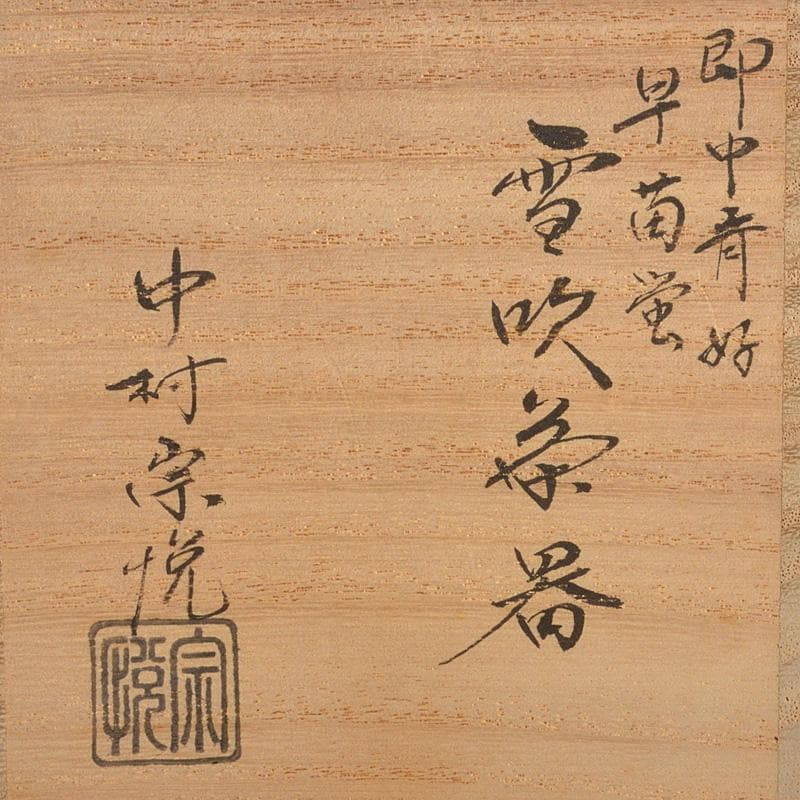 即中斎好
早苗蛍
雪吹茶器
中村宗悦
宗悦